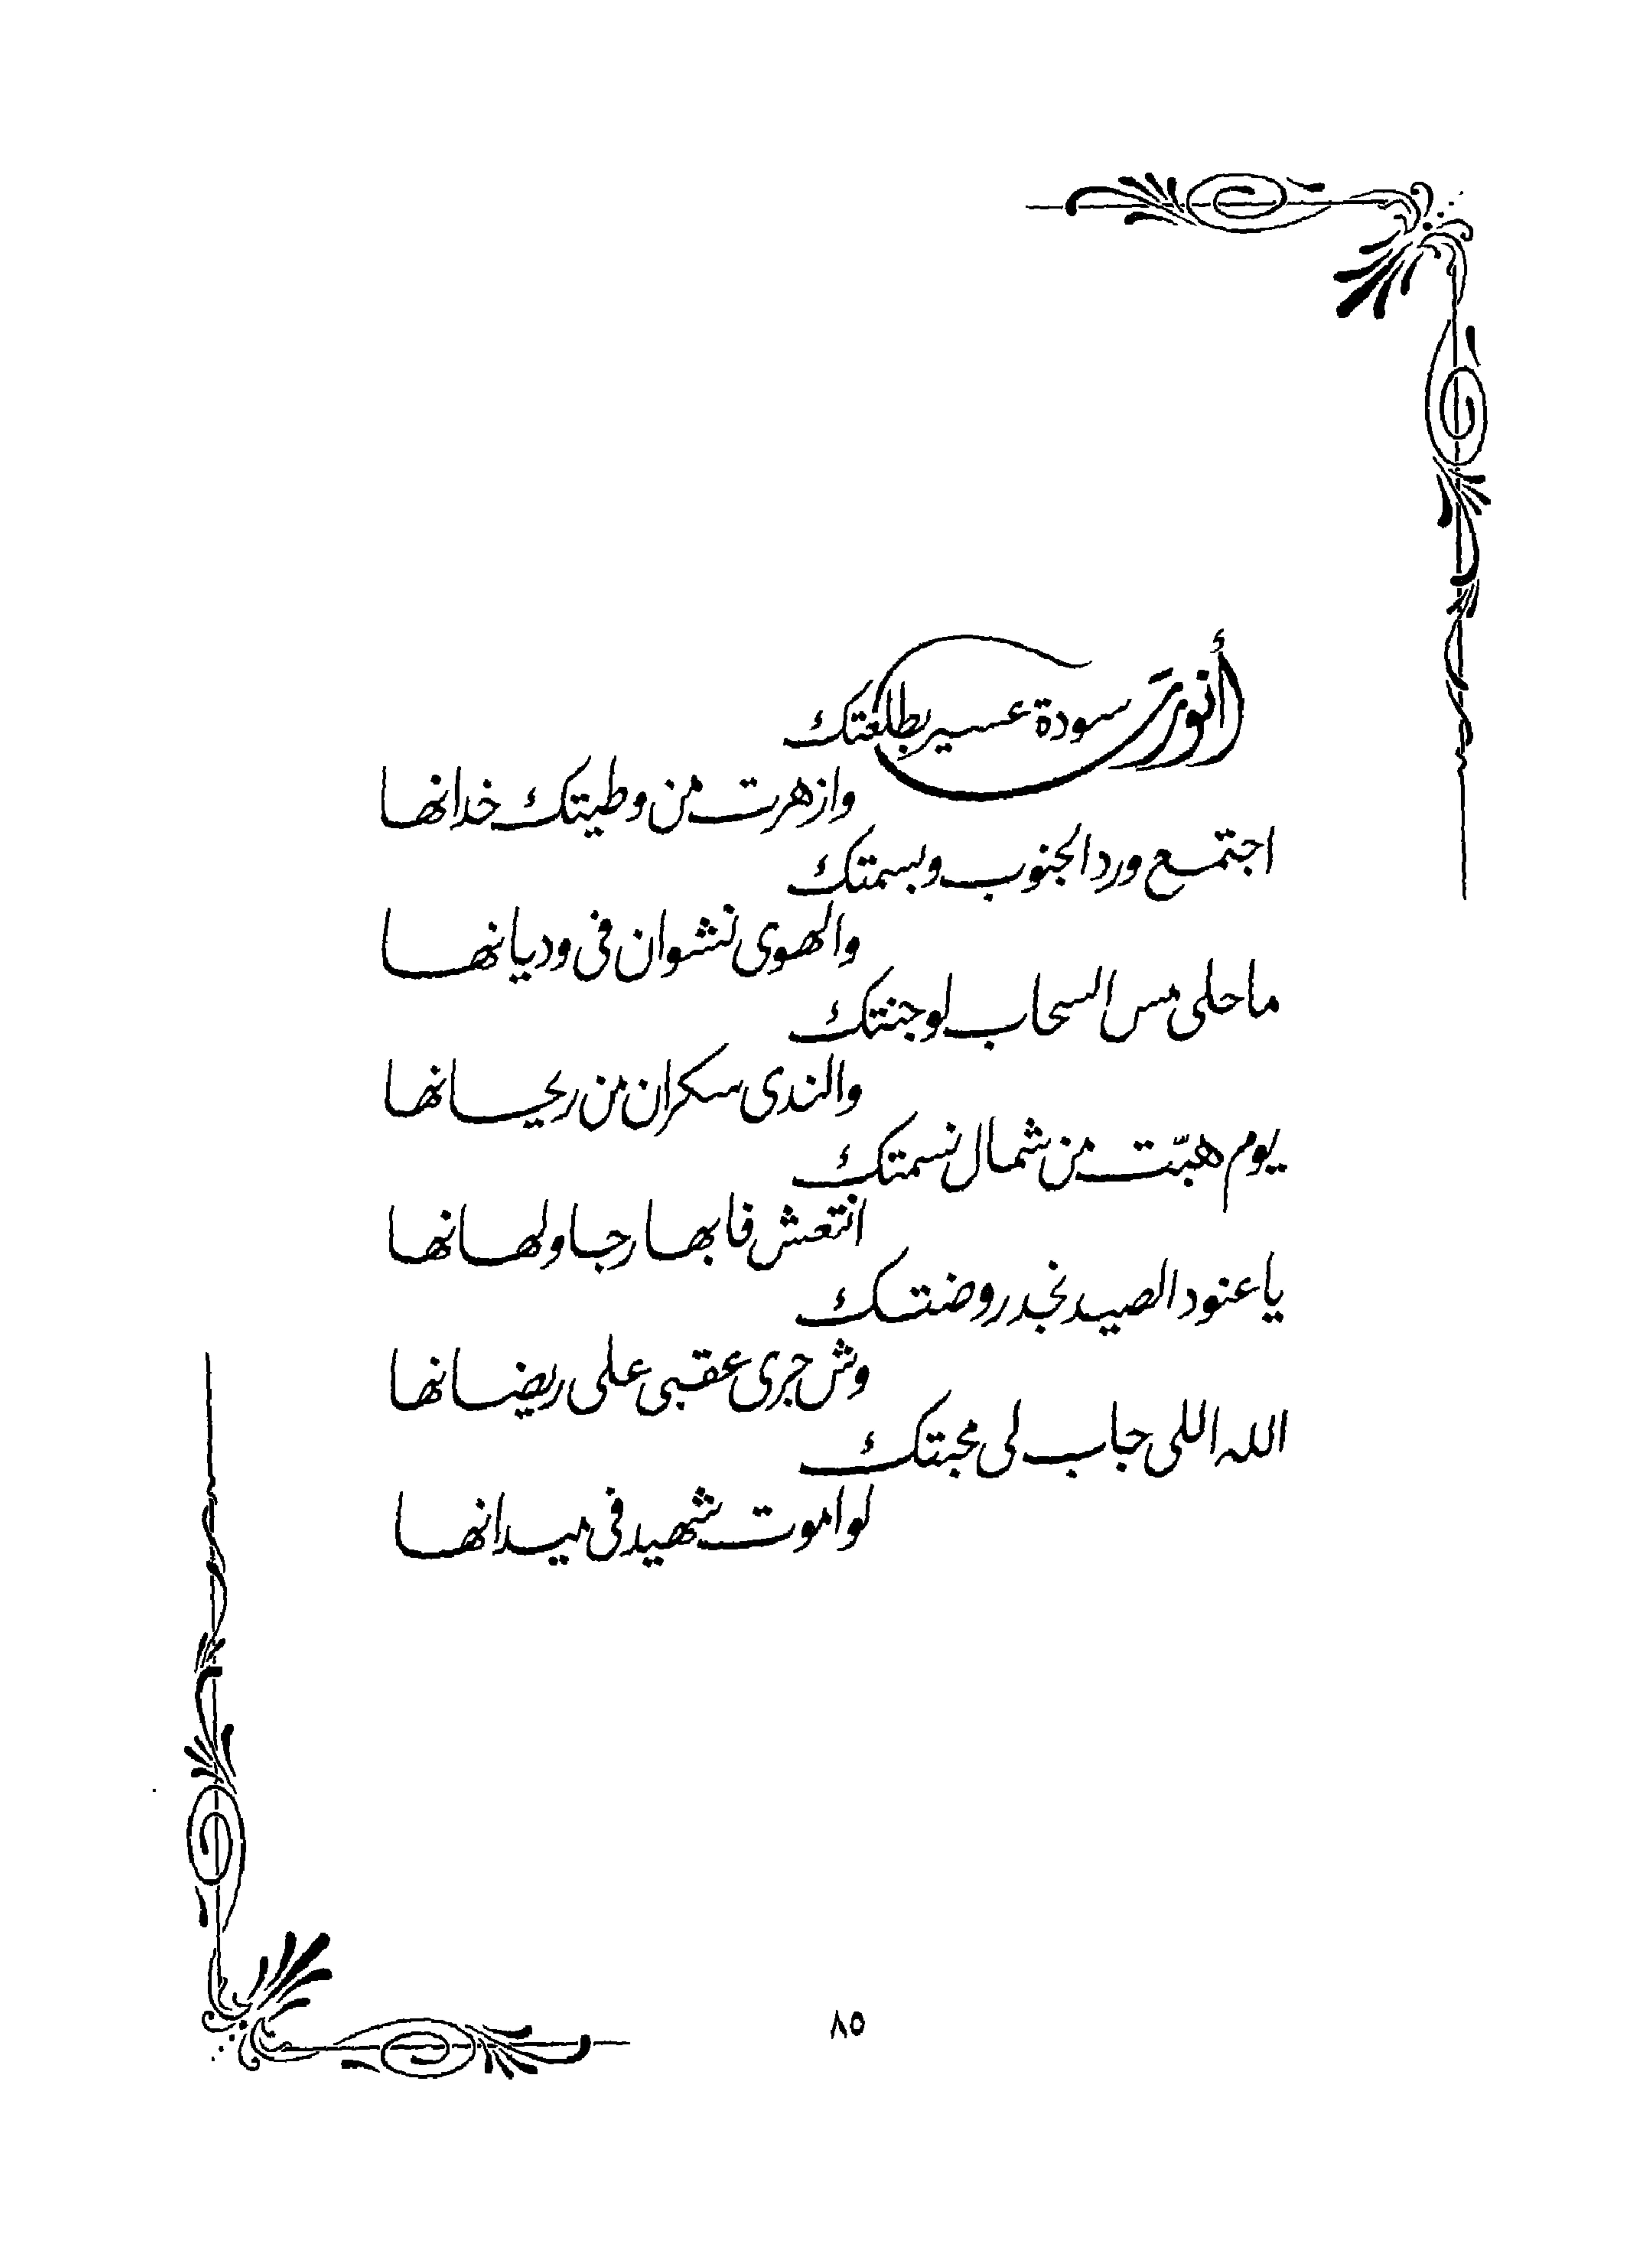 أنورَت سودة عسير بطلعتك
وازهرت من وطيتك خدانها
اجتمع ورد الجنوب وبسمتك
والهوى نشوان في وديانها
ما حلى مس السحاب لوجنتك
والندى سكران من ريحانها
يوم هبّت من شمال نسمتك
انتعش فابها رجا ولهانها
يا عنود الصيد نجد روضتك
وش جرى عقبي على ريضانها
الله اللي جاب لي محبتك
لو اموت شهيد في ميدانها
٨٥